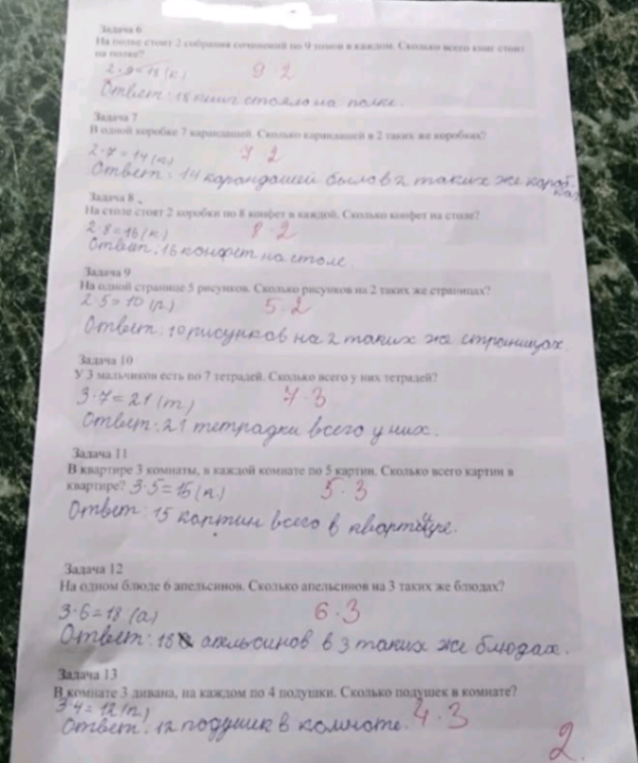 Задача 6
На полке стоит 2 собрания сочинений по 9 томов в каждом. Сколько всего книг стоит
на полке?
2·9=18 (к) 9·2
Ответ: 18 книг стояло на полке.
Задача 7
В одной коробке 7 карандашей. Сколько карандашей в 2 таких же коробках?
2·7=14 (к) 7·2
Ответ: 14 карандашей было в 2 таких же короб
ках
Задача 8
На столе стоят 2 коробки по 8 конфет в каждой. Сколько конфет на столе?
2·8=16 (к) 8·2
Ответ: 16 конфет на столе.
Задача 9
На одной странице 5 рисунков. Сколько рисунков на 2 таких же страницах?
2·5=10 (р) 5·2
Ответ: 10 рисунков на 2 таких же страницах.
Задача 10
У 3 мальчиков есть по 7 тетрадей. Сколько всего у них тетрадей?
3·7=21 (т) 7·3
Ответ: 21 тетрадки всего у них.
Задача 11
В квартире 3 комнаты, в каждой комнате по 5 картин. Сколько всего картин в
квартире? 3·5=15 (к.) 5·3
Ответ: 15 картин всего в квартире.
Задача 12
На одном блюде 6 апельсинов. Сколько апельсинов на 3 таких же блюдах?
3·6=18 (а) 6·3
Ответ: 18 апельсинов в 3 таких же блюдах.
Задача 13
В комнате 3 дивана, на каждом по 4 подушки. Сколько подушек в комнате?
3·4=12 (п) 4·3
Ответ: 12 подушек в комноте.
2.